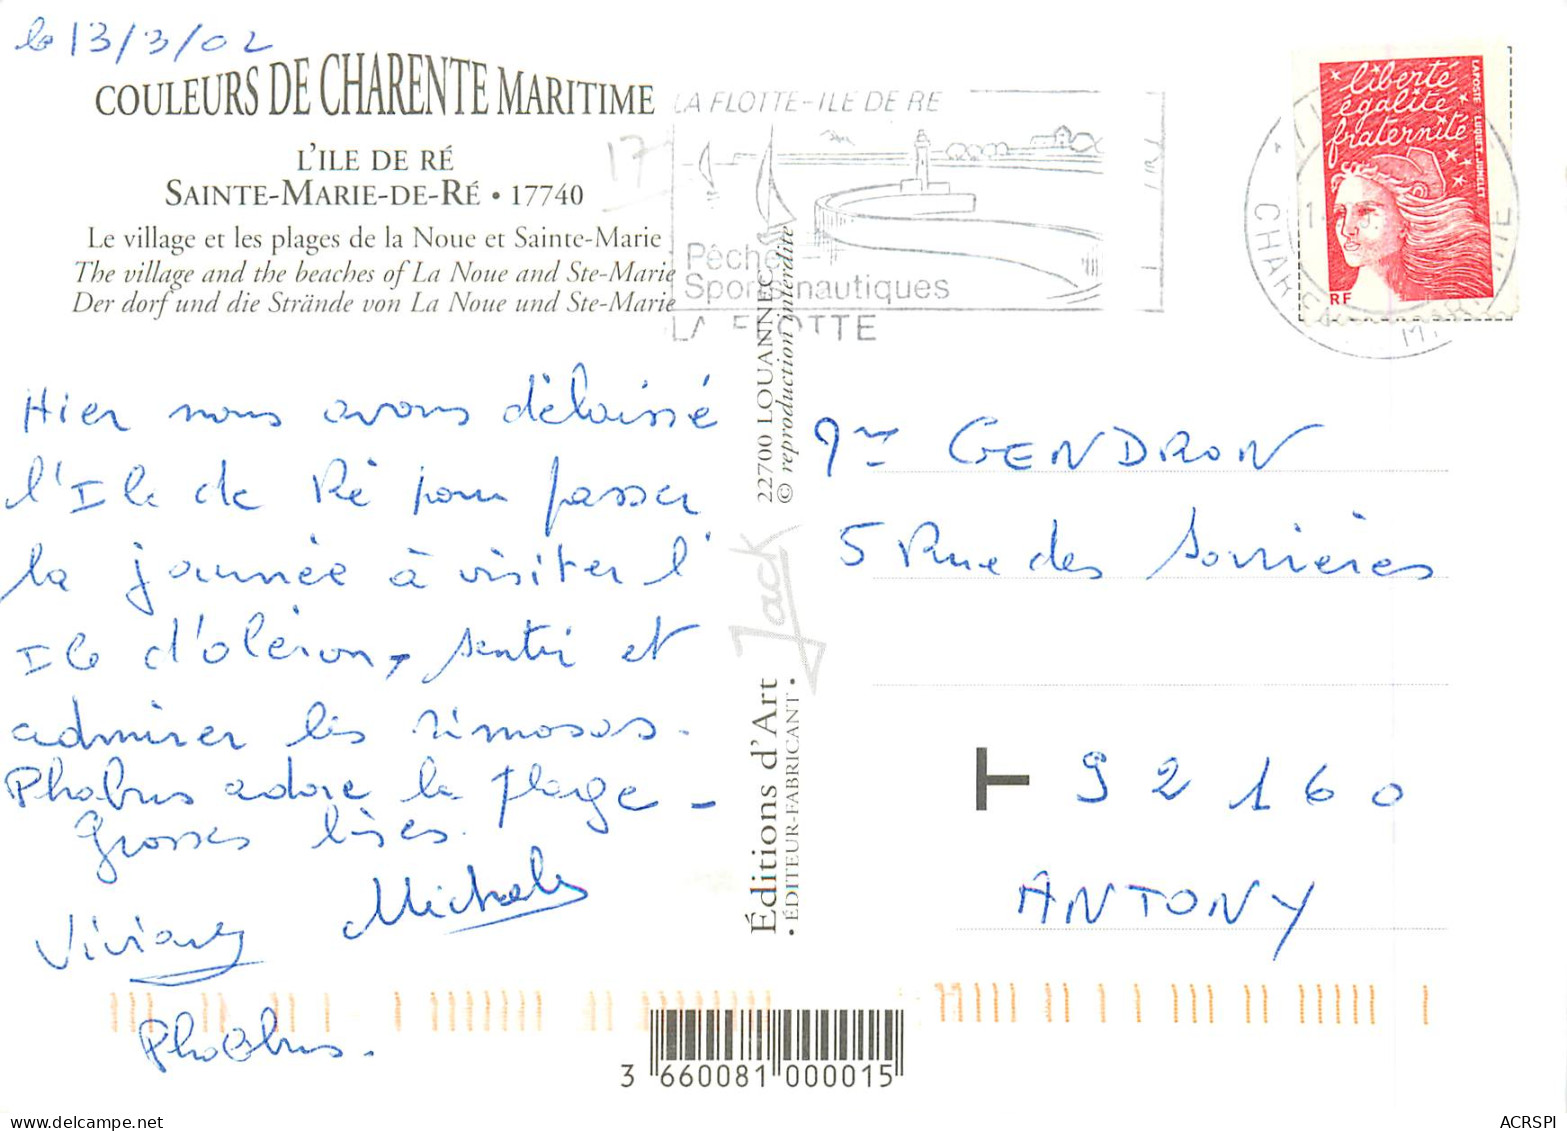 le 13/3/02
COULEURS DE CHARENTE MARITIME
L'ILE DE RÉ
SAINTE-MARIE-DE-RÉ • 17740
Le village et les plages de la Noue et Sainte-Marie
The village and the beaches of La Noue and Ste-Marie
Der dorf und die Strände von La Noue und Ste-Marie
17
LA FLOTTE-ILE DE RE
Pêche
Sports nautiques
LA FLOTTE
liberté
égalité
fraternité
LA POSTE LUQUET, JUMELET
RF
Hier nous avons délaissé
l'Ile de Ré pour passer
la journée à visiter l'
Ile d'oléron, sentir et
admirer les mimosas.
Phœbus adore la plage -
Grosses bises.
Viviane Michel
Phœbus.
22700 LOUANNEC
© reproduction interdite
Jack
Éditions d'Art
• ÉDITEUR-FABRICANT •
Mme GENDRON
5 Rue des
T 92160
ANTONY
3 660081 000015
ACRSPI